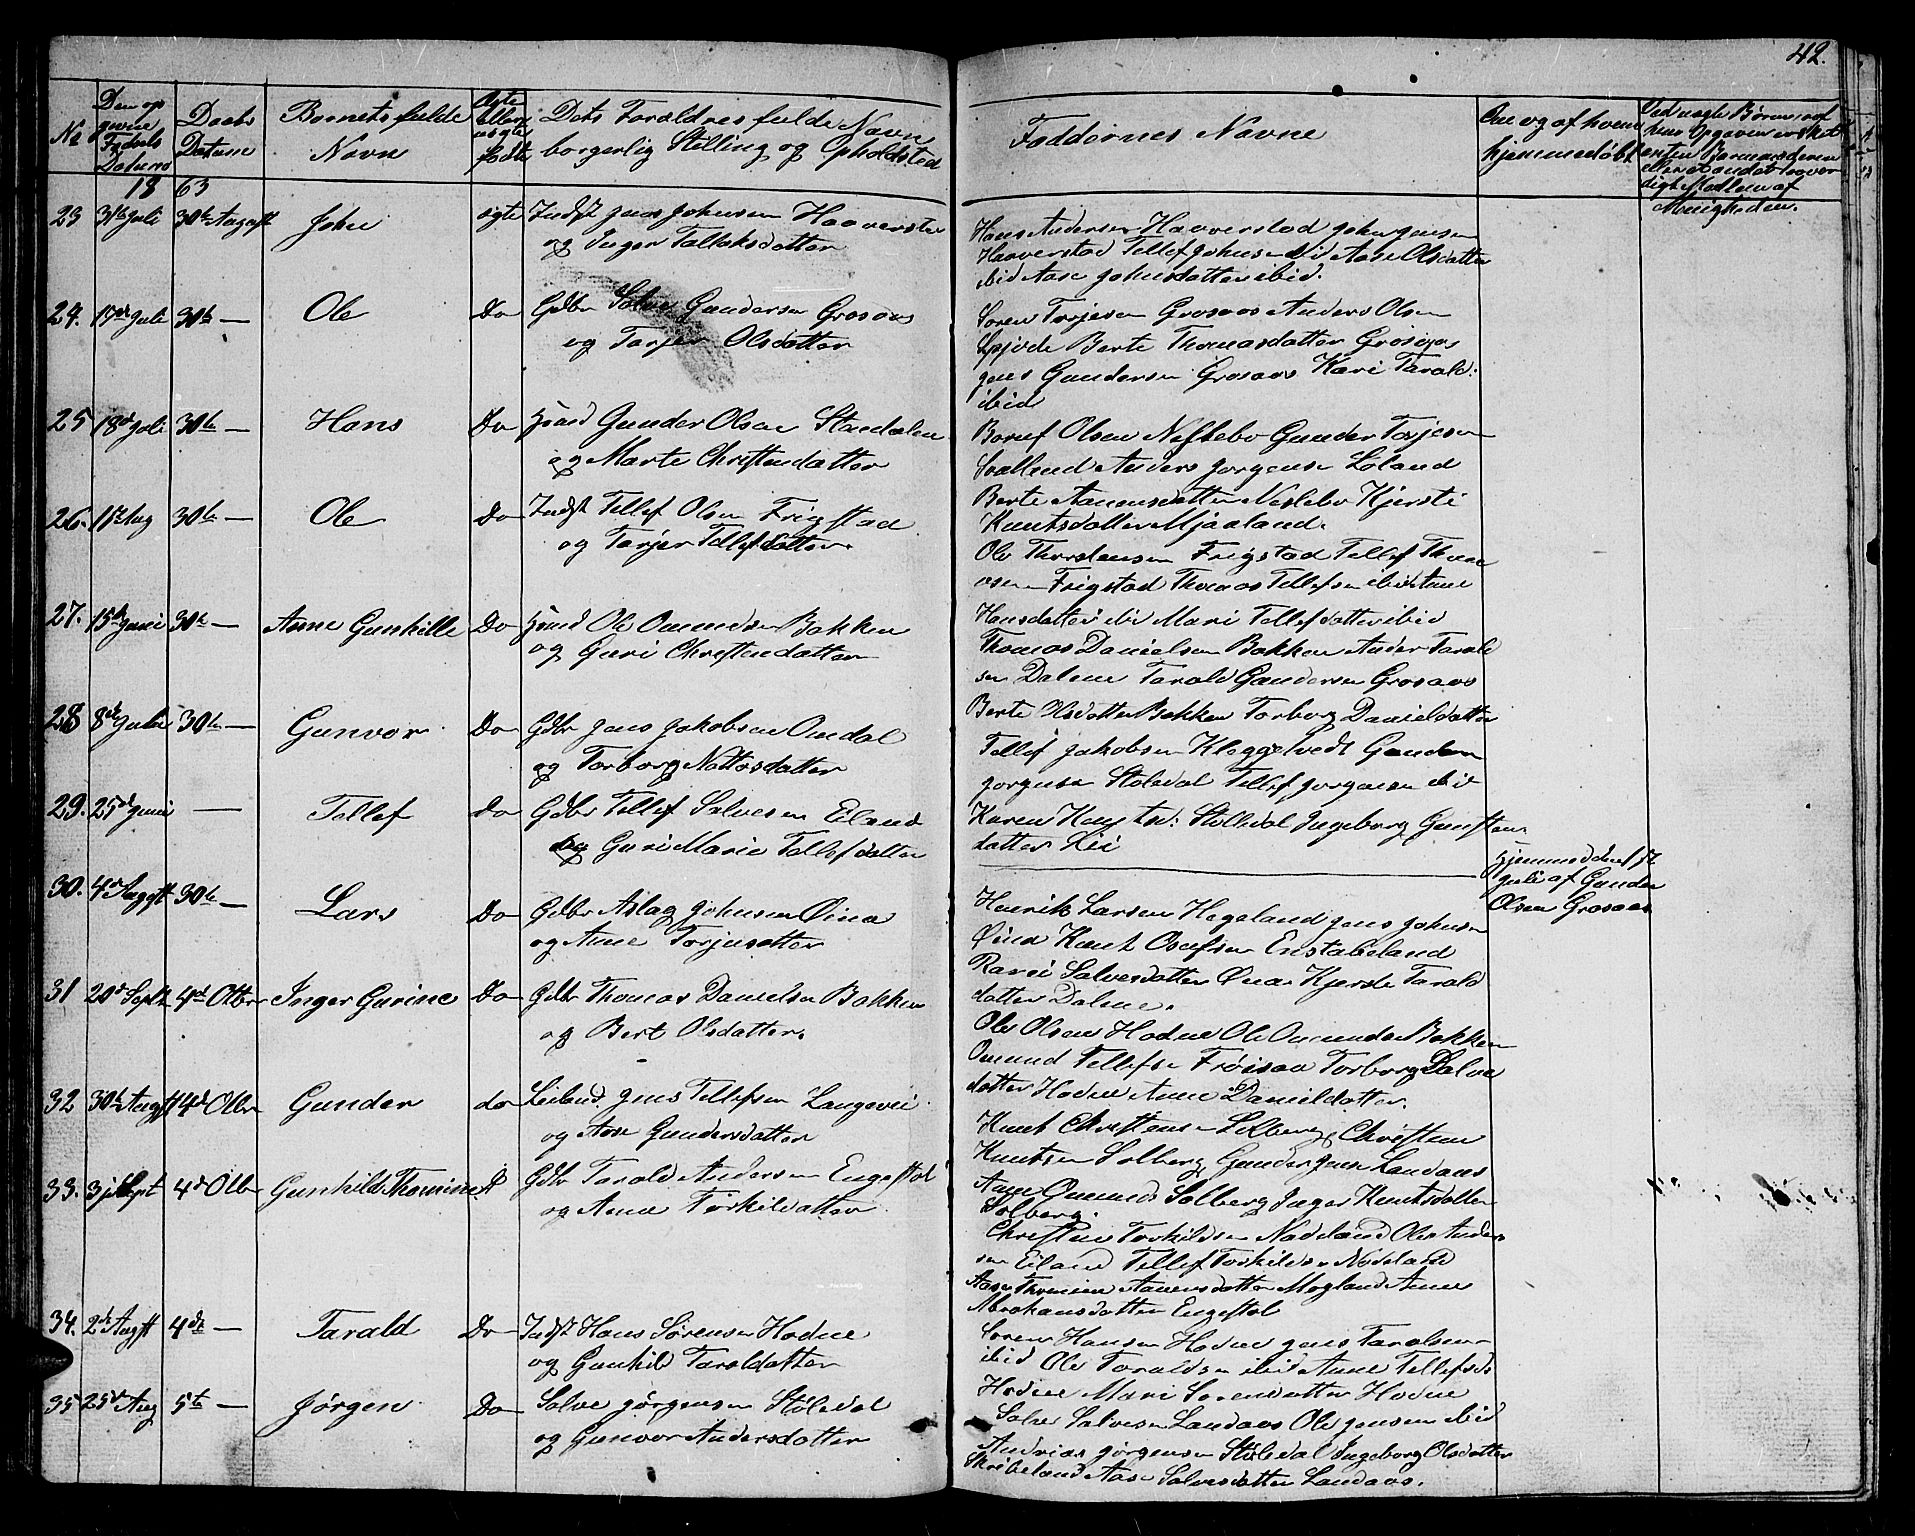 42.
No
Den op
givne
Fødsels
Datum
Daabs
Datum
Barnets fulde
Navn
Ægte
eller
uægte
fødte
Dets Forældres fulde Navn
borgerlig Stilling og Opholdsted
Faddernes Navne
Om og af hvem
hjemmedøbt
Ved uægte Børn
1863
23 31te Juli 30te August John ægte Indst Jens Johnsen Haaverstad
og Inger Tallaksdatter
Hans Andersen Haaverstad John Jensen
Haaverstad Tellef Johnsen ibid Aase Olsdatter
ibid Aase Johnsdatter ibid.
24. 17de Juli 30te — Ole Do Gdbr Salve Gundersen Grosaas
og Tarjer Olsdatter
Soren Torjesen Grosaas Anders Olsen
Berte Thomasdatter Grosaas
Jens Gundersen Grosaas Kari Tarald:
ibid
25 18de Juli 30te — Hans Do Gunder Olsen Standalen
og Marte Christensdatter
Olsen Neslebo Gunder Torjesen
Anders Jorgensen Loland
Berte Aanensdatter Neslebo Kjersti
Knutsdatter Mjaaland.
26. 17de Aug 30te — Ole Do Indst Tellef Olsen Frigstad
og Tarjer Tellefsdatter.
Ole Thorstensen Frigstad Tellef Thom
asen Frigstad Thomas Tellefsen ibid Anne
Hansdatter ibid Mari Tellefsdatter ibid
27. 15de Juni 30te — Anne Gunhille Do Ole Omundsen Bakken
og Guri Christensdatter
Thomas Danielsen Bakken Ander Tarald
sen Dalene Tarald Gundersen Grosaas
Berte Olsdatter Bakken Torborg Danielsdatter
28 8de Juli 30te — Gunvor Do Gdbr Jens Jakobsen Omdal
og Torborg Nottosdatter
Tellef Jakobsen Kleggetvedt Gunder
Jorgensen Stoledal Tellef Jorgensen ibid
Karen Knutsd: Stolledal Ingeborg Gunsten
datter Lii
29. 25de Juni — Tellef Do Gdbr Tellef Salvesen Eiland
og Guri Marie Tellefsdatter
Hjemmedøbt
Juli af Gunder
Olsen Grosaas
30. 4de Augst 30te — Lars Do Gdbr Aslag Johnsen Øina
og Anne Torjusdatter
Henrik Larsen Hegeland Jens Johnsen
Øina Knut Osufsen Enstabeland
Ranei Salvesdatter Øina Kjerste Tarald
datter Dalene.
31 20de Septb 4de Otbr Inger Gurine Do Gdbr Thomas Danielsen Bakken
og Bert Olsdatter.
Ole Olsen Hodne Ole Omundsen Bakken
Omund Tellefsen Frøisaa Torborg Salve
datter Hodne Anne Danieldatter.
32 30te Augst 4de Otbr Gunder do Leiland. Jens Tellefsen Langevei
og Aase Gundersdatter
Knut Christensen Solberg Christen
Knutsen Solberg Gunder Jensen Landaas
Anne Omunds Solberg Inger Knutsdatter
Solberg.
33. 3je Sept 4de Otbr Gunhild Thomine Gdbr Tarald Andersen Engestol
og Anne Torkildatter
Christen Torkildsen Nodeland Ole Ander
sen Eiland Tellef Torkildsen Nodeland
Aase Thomine Aanensdatter Mogland Anne
Abrahamsdatter Engestol
34. 2de Augst 4de — Tarald Do Indst Hans Sørensen Hodne
og Gunhild Taraldatter
Soren Hansen Hodne Jens Taralsen
ibid Ole Taraldsen ibid Anne Tellefsd:
Hodne Mari Sorensdatter Hodne
35 25de Aug 5te — Jørgen Do Salve Jørgensen Stoledal
og Gunvor Andersdatter
Salve Salvesen Landaas Ole Jensen ibid
Andrias Jørgensen Støledal Ingeborg Olsdatter
Skribeland Aase Salvesdatter Landaas.